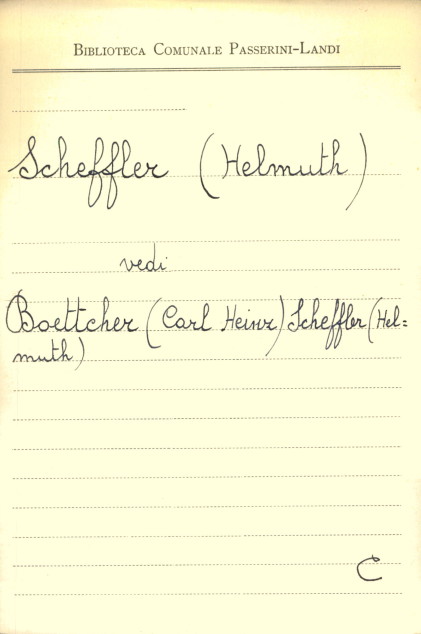 BIBLIOTECA COMUNALE PASSERINI-LANDI
Scheffler (Helmuth)
vedi
Boettcher (Carl Heinz) Scheffler (Hel=
muth)
C